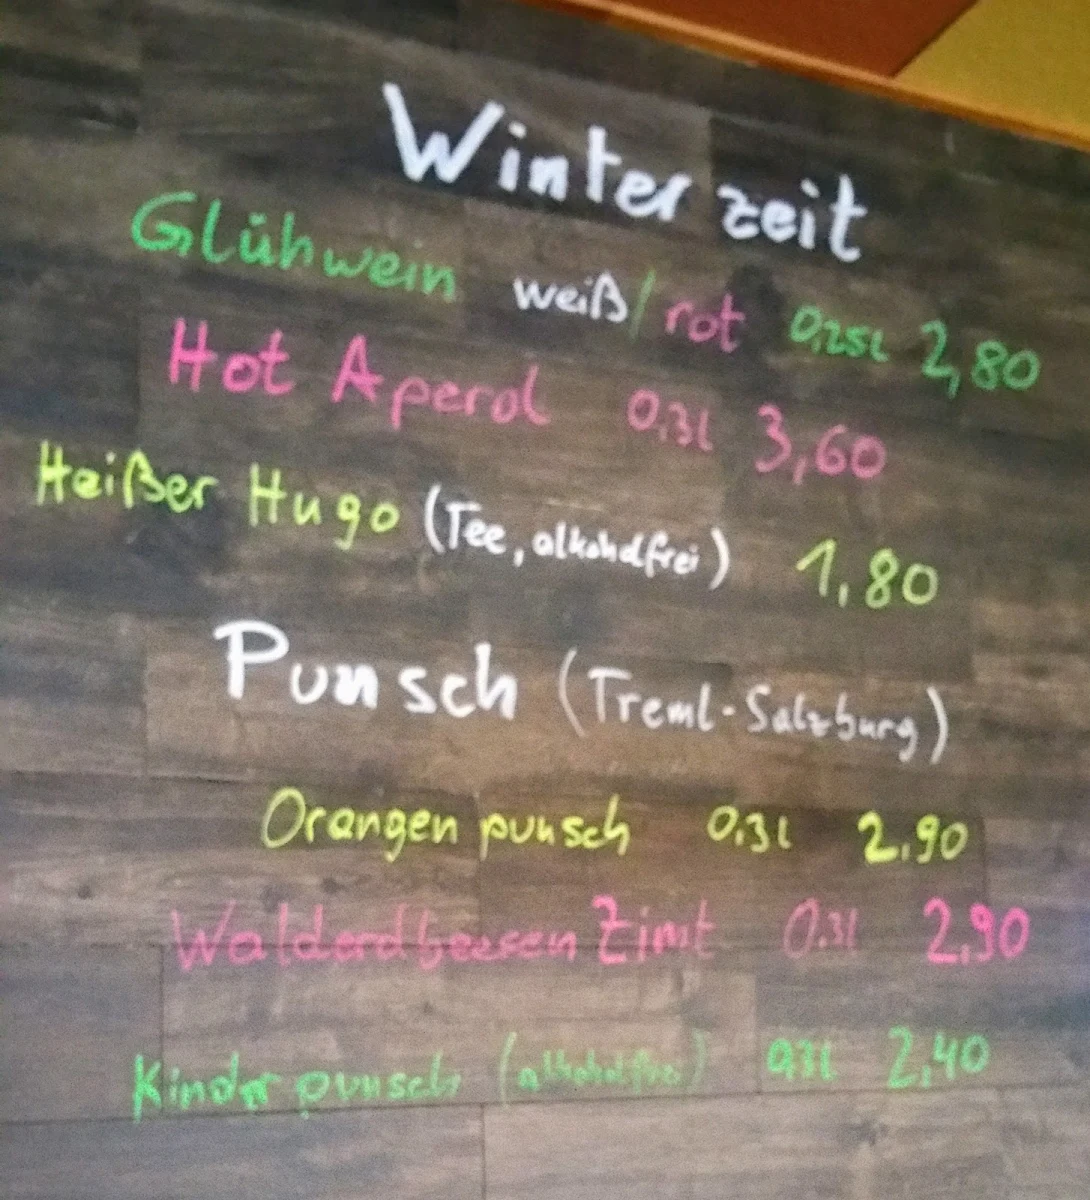 Winterzeit
Glühwein weiß/rot 0,25l 2,80
Hot Aperol 0,3l 3,60
Heißer Hugo (Tee, alkoholfrei) 1,80
Punsch (Treml-Salzburg)
Orangenpunsch 0,3l 2,90
Walderdbeeren Zimt 0,3l 2,90
Kinderpunsch (alkoholfrei) 0,3l 2,40